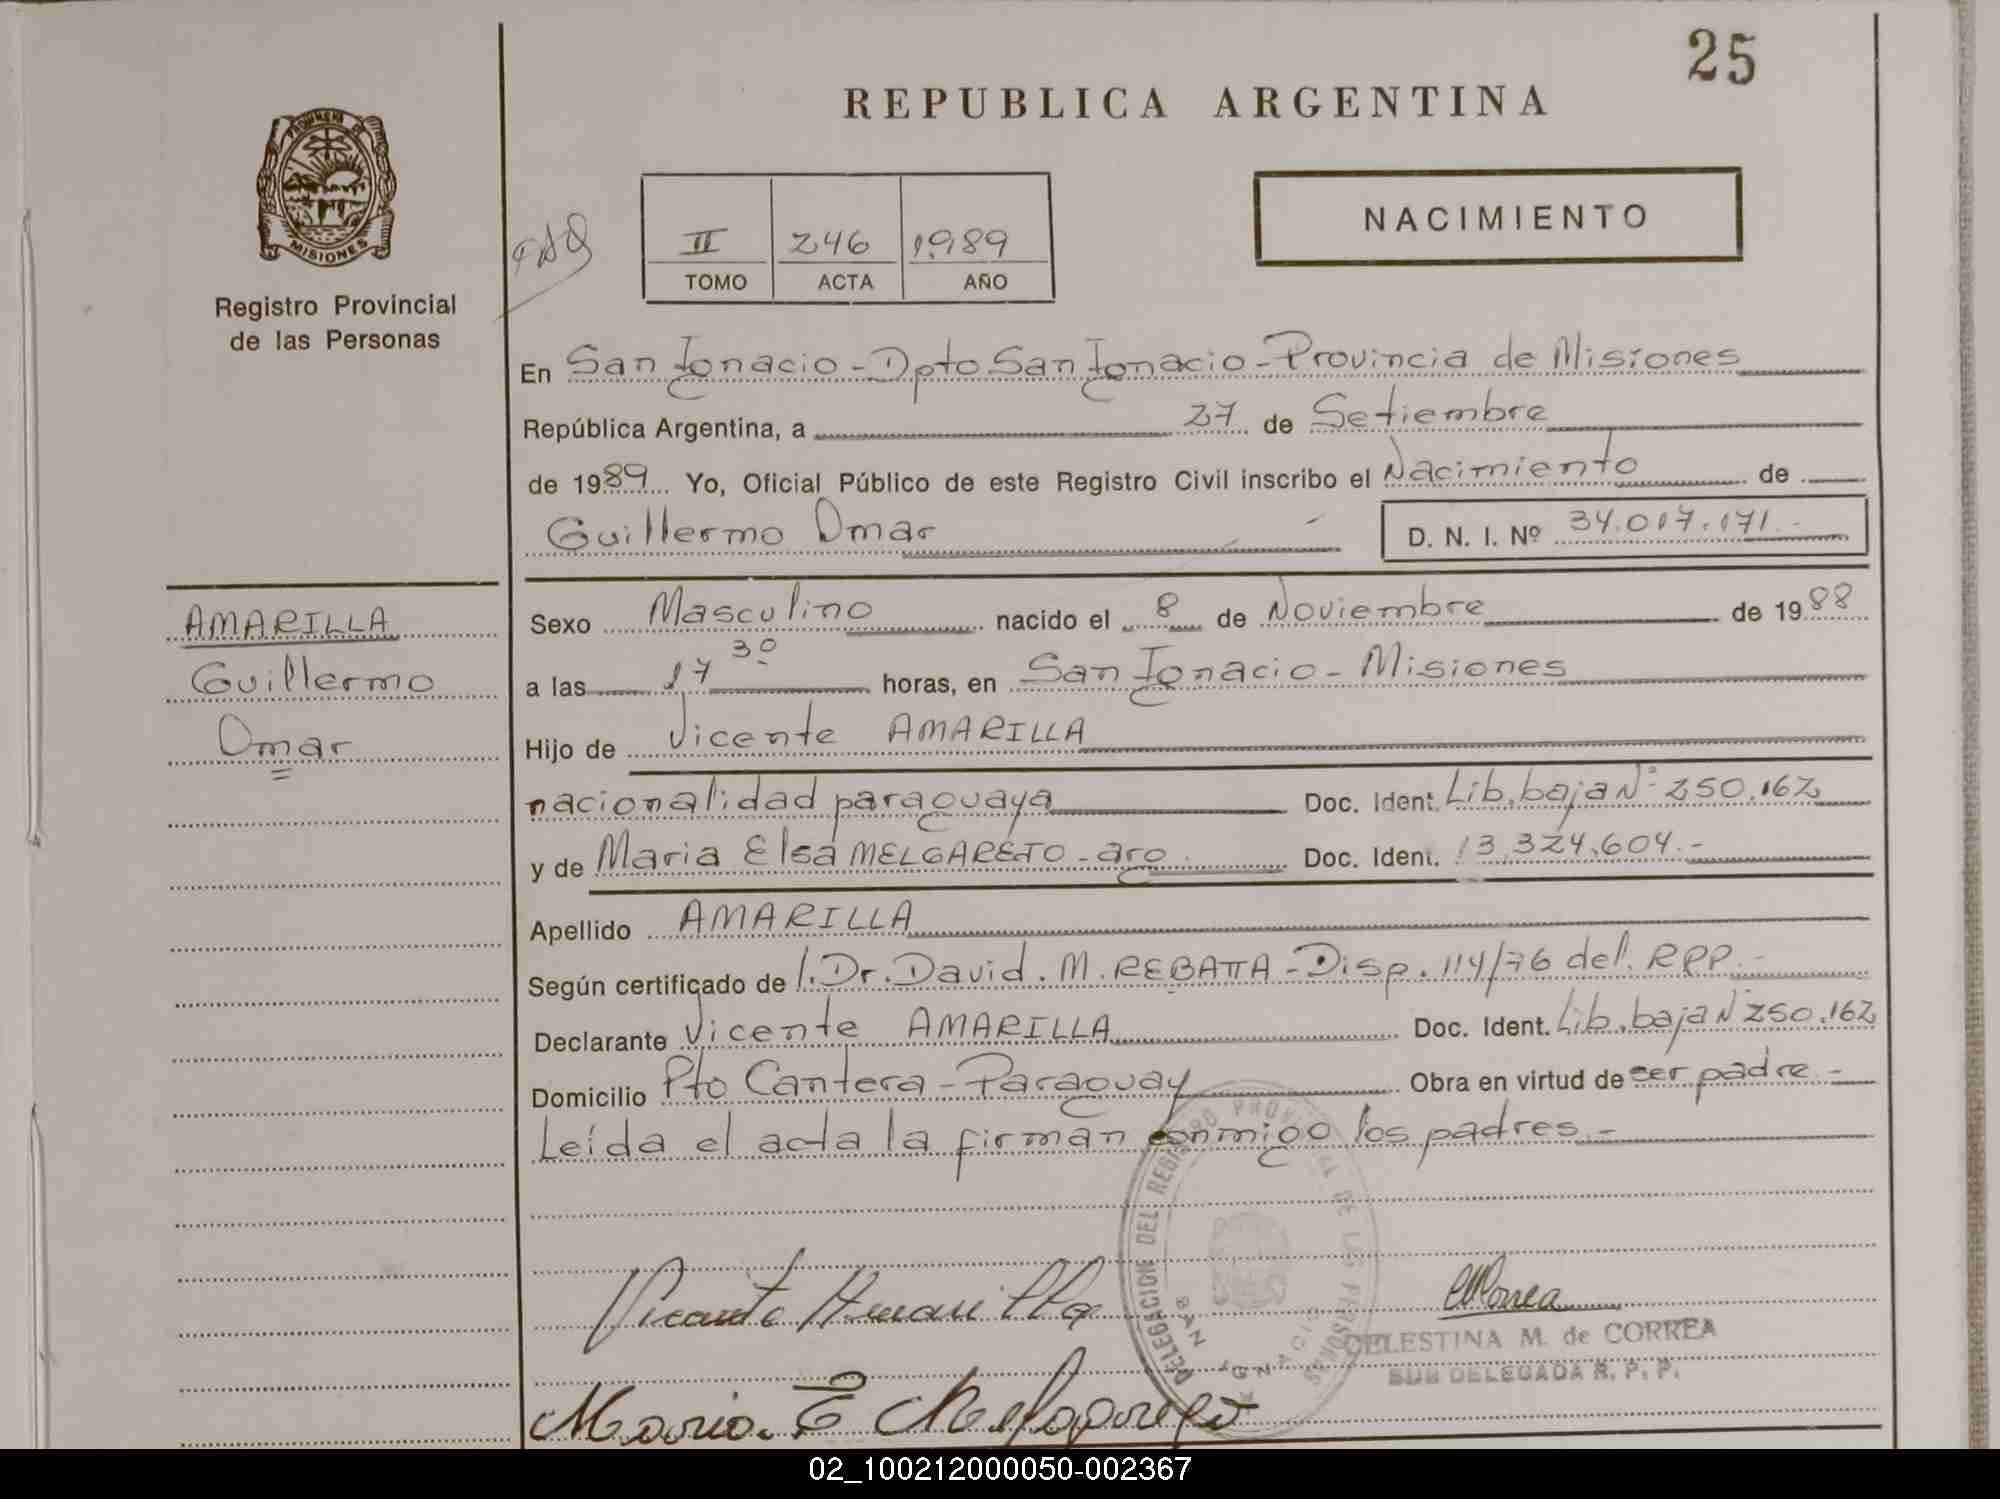 25
REPUBLICA ARGENTINA
PROVINCIA DE
MISIONES
Registro Provincial
de las Personas
II 246 1989
TOMO ACTA AÑO
NACIMIENTO
En San Ignacio - Dpto San Ignacio - Provincia de Misiones
República Argentina, a 27 de Setiembre
de 1989 Yo, Oficial Público de este Registro Civil inscribo el Nacimiento de
Guillermo Omar D. N. I. Nº 34.017.171.-
AMARILLA
Guillermo
Omar
Sexo Masculino nacido el 8 de Noviembre de 1988
a las 17 30 horas, en San Ignacio - Misiones
Hijo de Vicente AMARILLA
nacionalidad paraguaya Doc. Ident. Lib. baja Nº 250.162
y de Maria Elsa MELGAREJO - arg. Doc. Ident. 13.324.604.-
Apellido AMARILLA
Según certificado de l. Dr. David. M. REBATTA - Disp. 114/76 del. RPP.-
Declarante Vicente AMARILLA Doc. Ident. Lib. baja Nº 250.162
Domicilio Pto Cantera - Paraguay Obra en virtud de ser padre.-
Leída el acta la firman conmigo los padres.-
DELEGACION DEL REGISTRO PROVINCIAL DE LAS PERSONAS
SAN IGNACIO
Vicente Amarilla
CMCorrea
CELESTINA M. de CORREA
SUB DELEGADA R. P. P.
Maria E Melgarejo
02_100212000050-002367